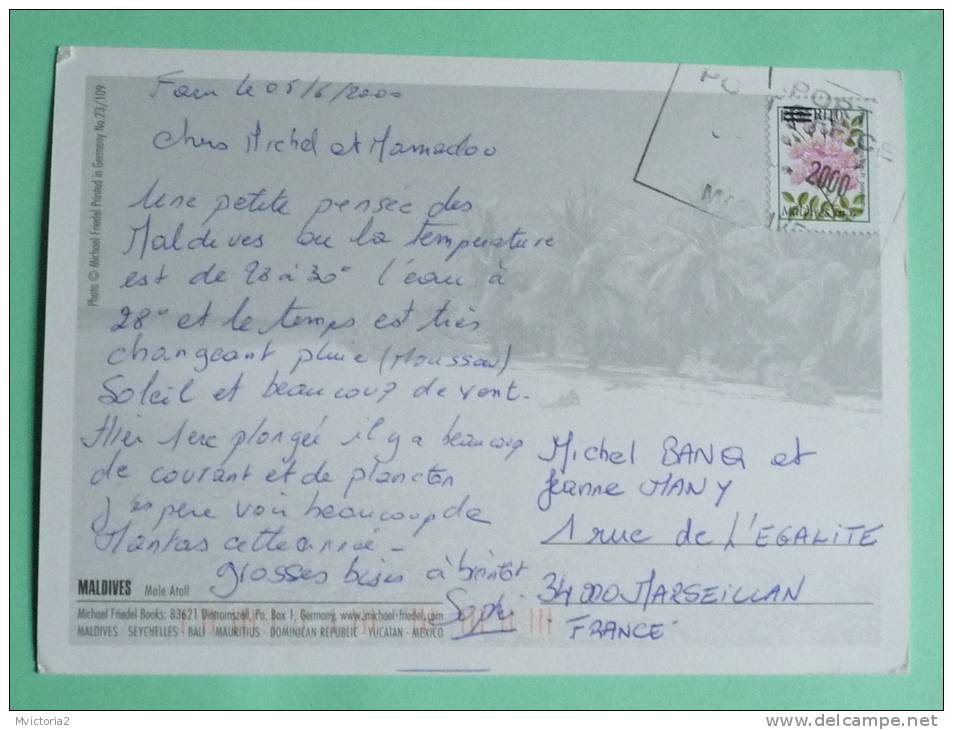 le 05/6/2000
Chers Michel et Mamadou
Une petite pensée des
Maldives ou la température
est de 28 à 30° l'eau à
28° et le temps est très
changeant pluie (Mousson)
Soleil et beaucoup de vent.
Hier 1ere plongée il y a beaucoup
de courant et de plancton
J'espère voir beaucoup de
Mantas cette année -
grosses bises à bientôt
Sophie
Michel BANQ et
Jeanne MANY
1 rue de L'EGALITE
34000 MARSEILLAN
FRANCE
RF10
2000
Maldives
Photo © Michael Friedel Printed in Germany No.23/109
MALDIVES Male Atoll
Michael Friedel Books: 83621 Dietramszell, Po. Box 1, Germany, www.michael-friedel.com
MALDIVES · SEYCHELLES · BALI · MAURITIUS · DOMINICAN REPUBLIC · YUCATAN - MEXICO
Mvictoria2
www.delcampe.net